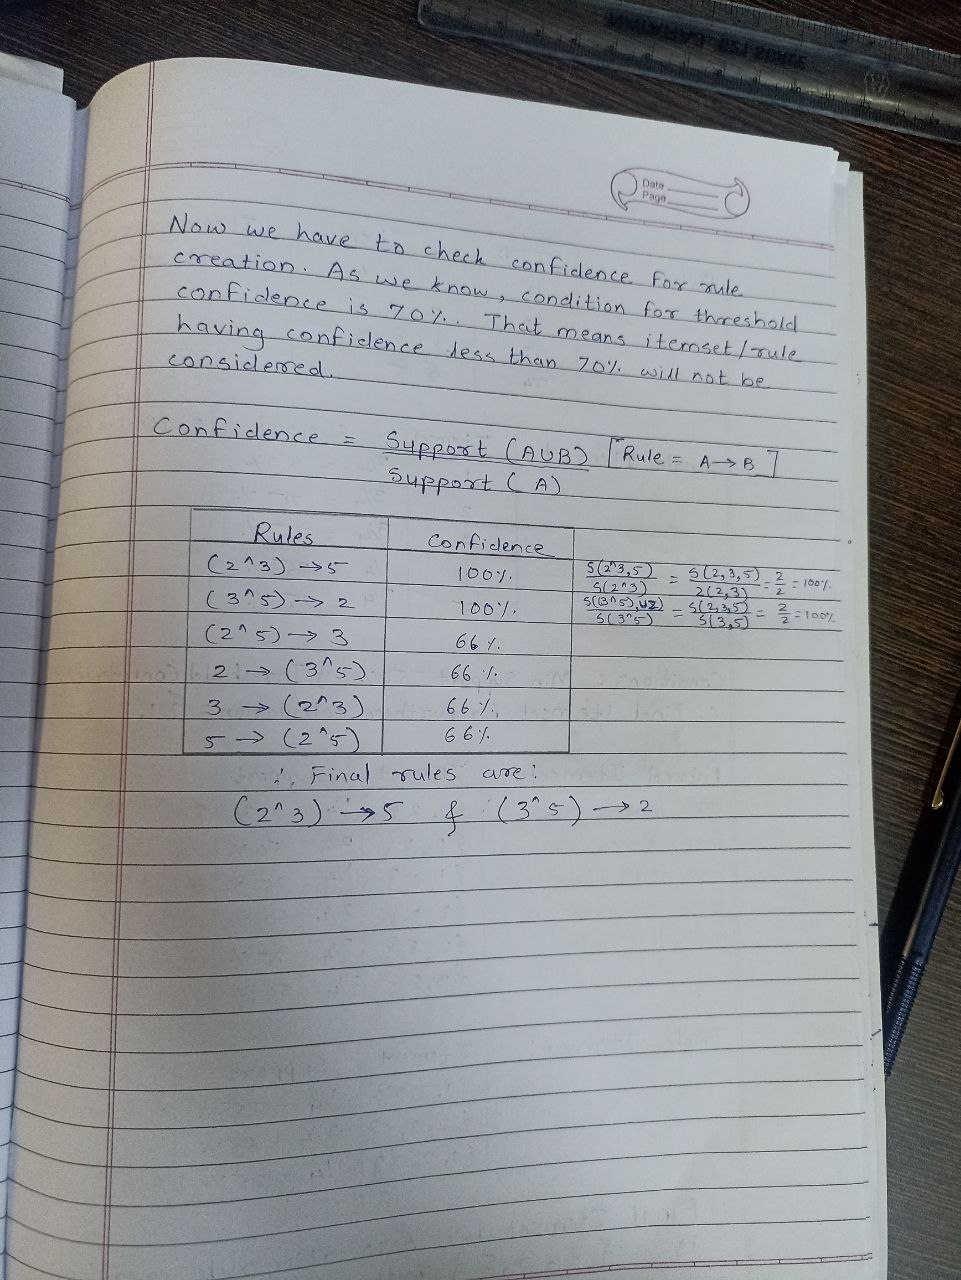 Date
Page
Now we have to check confidence for rule
creation. As we know, condition for threshold
confidence is 70%. That means itemset/rule
having confidence less than 70% will not be
considered.
Confidence = Support (AUB) / Support (A) [Rule = A→B]
Rules Confidence
(2^3) →5 100% S(2^3,5) / S(2^3) = S(2,3,5) / 2(2,3) = 2/2 = 100%
(3^5) → 2 100% S((3^5),U2) / S(3^5) = S(2,3,5) / S(3,5) = 2/2 = 100%
(2^5) → 3 66%
2 → (3^5) 66%
3 → (2^3) 66%
5 → (2^5) 66%
∴ Final rules are:
(2^3) → 5 & (3^5) → 2